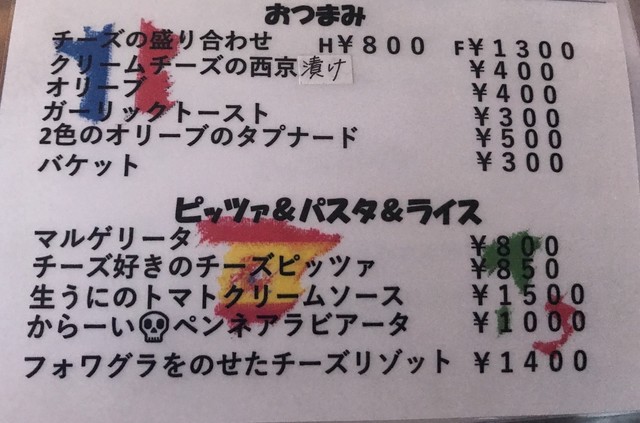 おつまみ
チーズの盛り合わせ H¥800 F¥1300
クリームチーズの西京漬け ¥400
オリーブ ¥400
ガーリックトースト ¥300
2色のオリーブのタプナード ¥500
バケット ¥300
ピッツァ&パスタ&ライス
マルゲリータ ¥800
チーズ好きのチーズピッツァ ¥850
生うにのトマトクリームソース ¥1500
からーい💀ペンネアラビアータ ¥1000
フォワグラをのせたチーズリゾット ¥1400